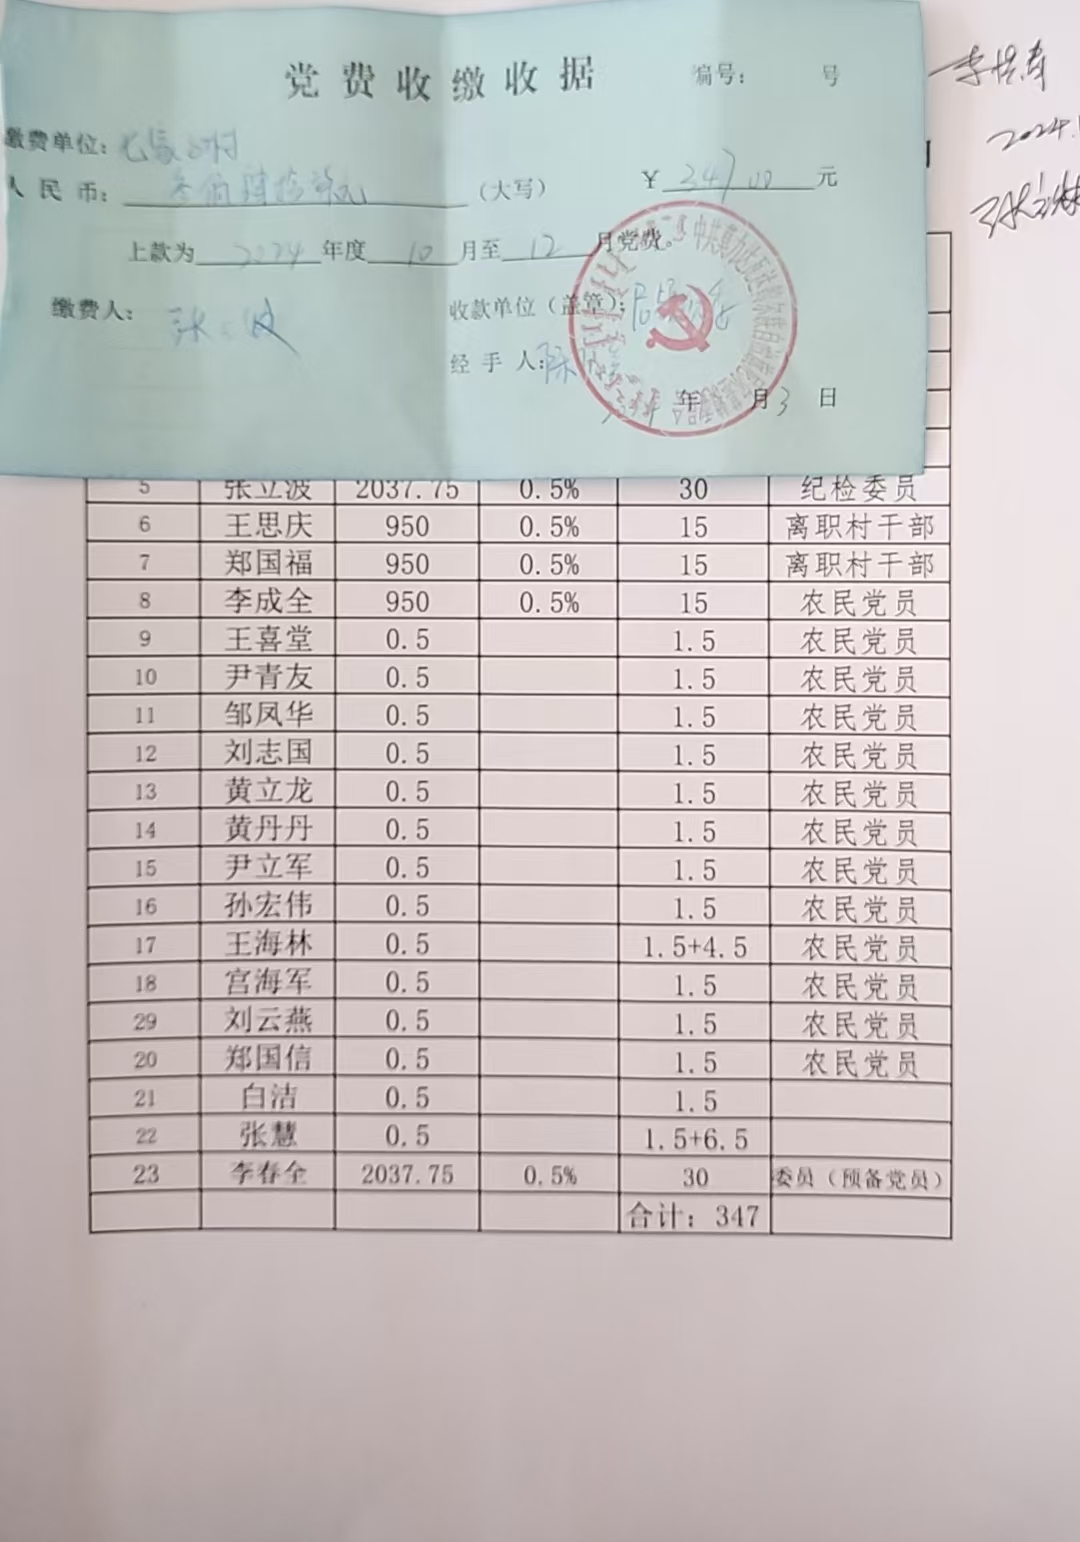 党费收缴收据 编号： 号
缴费单位：
人民币： （大写） ￥347.00元
上款为2024年度10月至12月党费。
缴费人： 收款单位（盖章）：
经手人：
年 月3日
2024.
5 张立波 2037.75 0.5% 30 纪检委员
6 王思庆 950 0.5% 15 离职村干部
7 郑国福 950 0.5% 15 离职村干部
8 李成全 950 0.5% 15 农民党员
9 王喜堂 0.5 1.5 农民党员
10 尹青友 0.5 1.5 农民党员
11 邹凤华 0.5 1.5 农民党员
12 刘志国 0.5 1.5 农民党员
13 黄立龙 0.5 1.5 农民党员
14 黄丹丹 0.5 1.5 农民党员
15 尹立军 0.5 1.5 农民党员
16 孙宏伟 0.5 1.5 农民党员
17 王海林 0.5 1.5+4.5 农民党员
18 宫海军 0.5 1.5 农民党员
29 刘云燕 0.5 1.5 农民党员
20 郑国信 0.5 1.5 农民党员
21 白洁 0.5 1.5
22 张慧 0.5 1.5+6.5
23 李春全 2037.75 0.5% 30 委员（预备党员）
合计：347